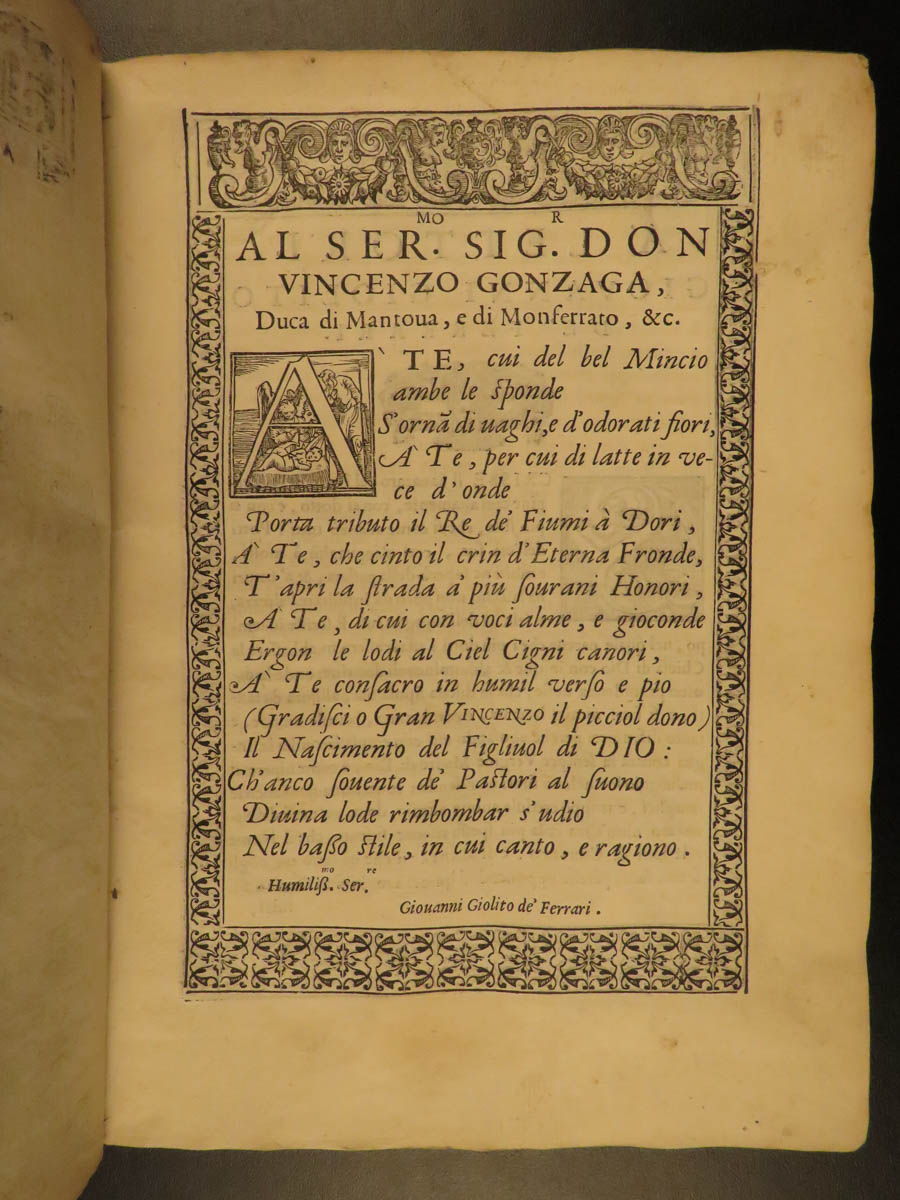 AL SER.MO SIG.R DON
VINCENZO GONZAGA,
Duca di Mantoua, e di Monferrato, &c.
A` TE, cui del bel Mincio
ambe le ſponde
S'ornã di uaghi, e d'odorati fiori,
A` Te, per cui di latte in ve-
ce d'onde
Porta tributo il Re de' Fiumi à Dori,
A` Te, che cinto il crin d'Eterna Fronde,
T'apri la ſtrada a' più ſourani Honori,
A` Te, di cui con voci alme, e gioconde
Ergon le lodi al Ciel Cigni canori,
A` Te conſacro in humil verſo e pio
(Gradiſci o Gran VINCENZO il picciol dono)
Il Naſcimento del Figliuol di DIO:
Ch'anco ſouente de' Paſtori al ſuono
Diuina lode rimbombar s'udio
Nel baßo ſtile, in cui canto, e ragiono.
Humiliß.mo Ser.re
Giouanni Giolito de' Ferrari.